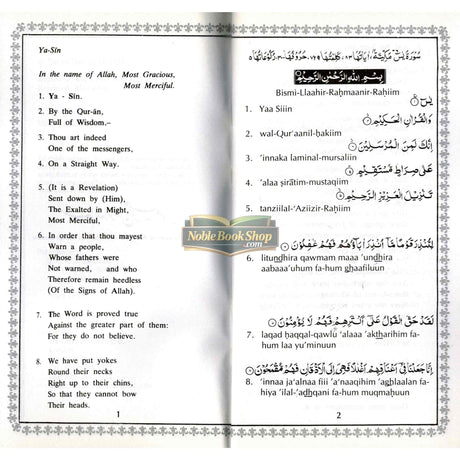 Ya-Sin
In the name of Allah, Most Gracious,
Most Merciful.
1. Ya - Sin.
2. By the Qur-án,
Full of Wisdom,–
3. Thou art indeed
One of the messengers,
4. On a Straight Way.
5. (It is a Revelation)
Sent down by (Him),
The Exalted in Might,
Most Merciful,
6. In order that thou mayest
Warn a people,
Whose fathers were
Not warned, and who
Therefore remain heedless
(Of the Signs of Allah).
7. The Word is proved true
Against the greater part of them:
For they do not believe.
8. We have put yokes
Round their necks
Right up to their chins,
So that they cannot bow
Their heads.
1
NobleBookShop
.com
بِسْمِ اللهِ الرَّحْمٰنِ الرَّحِيْمِ
Bismi-Llaahir-Raḥmaanir-Raḥiim
يٰسٓ
1. Yaa Siiin
وَالْقُرْاٰنِ الْحَكِيْمِ
2. wal-Qur'aanil-ḥakiim
اِنَّكَ لَمِنَ الْمُرْسَلِيْنَ
3. 'innaka laminal-mursaliin
عَلٰى صِرَاطٍ مُّسْتَقِيْمٍ
4. 'alaa ṣirāṭim-mustaqiim
تَنْزِيْلَ الْعَزِيْزِ الرَّحِيْمِ
5. tanziilal-'Aziizir-Raḥiim
لِتُنْذِرَ قَوْمًا مَّآ اُنْذِرَ اٰبَآؤُهُمْ فَهُمْ غٰفِلُوْنَ
6. litundhira qawmam maaa 'undhira
aabaaa'uhum fa-hum ghaafiluun
لَقَدْ حَقَّ الْقَوْلُ عَلٰٓى اَكْثَرِهِمْ فَهُمْ لَا يُؤْمِنُوْنَ
7. laqad ḥaqqal-qawlu 'alaaa 'aktharihim fa-
hum laa yu'minuun
اِنَّا جَعَلْنَا فِيْٓ اَعْنَاقِهِمْ اَغْلٰلًا فَهِيَ اِلَى الْاَذْقَانِ فَهُمْ مُّقْمَحُوْنَ
8. 'innaa ja'alnaa fiii 'a'naaqihim 'aghlaalan fa-
hiya 'ilal-'adhqani fa-hum muqmaḥuun
2